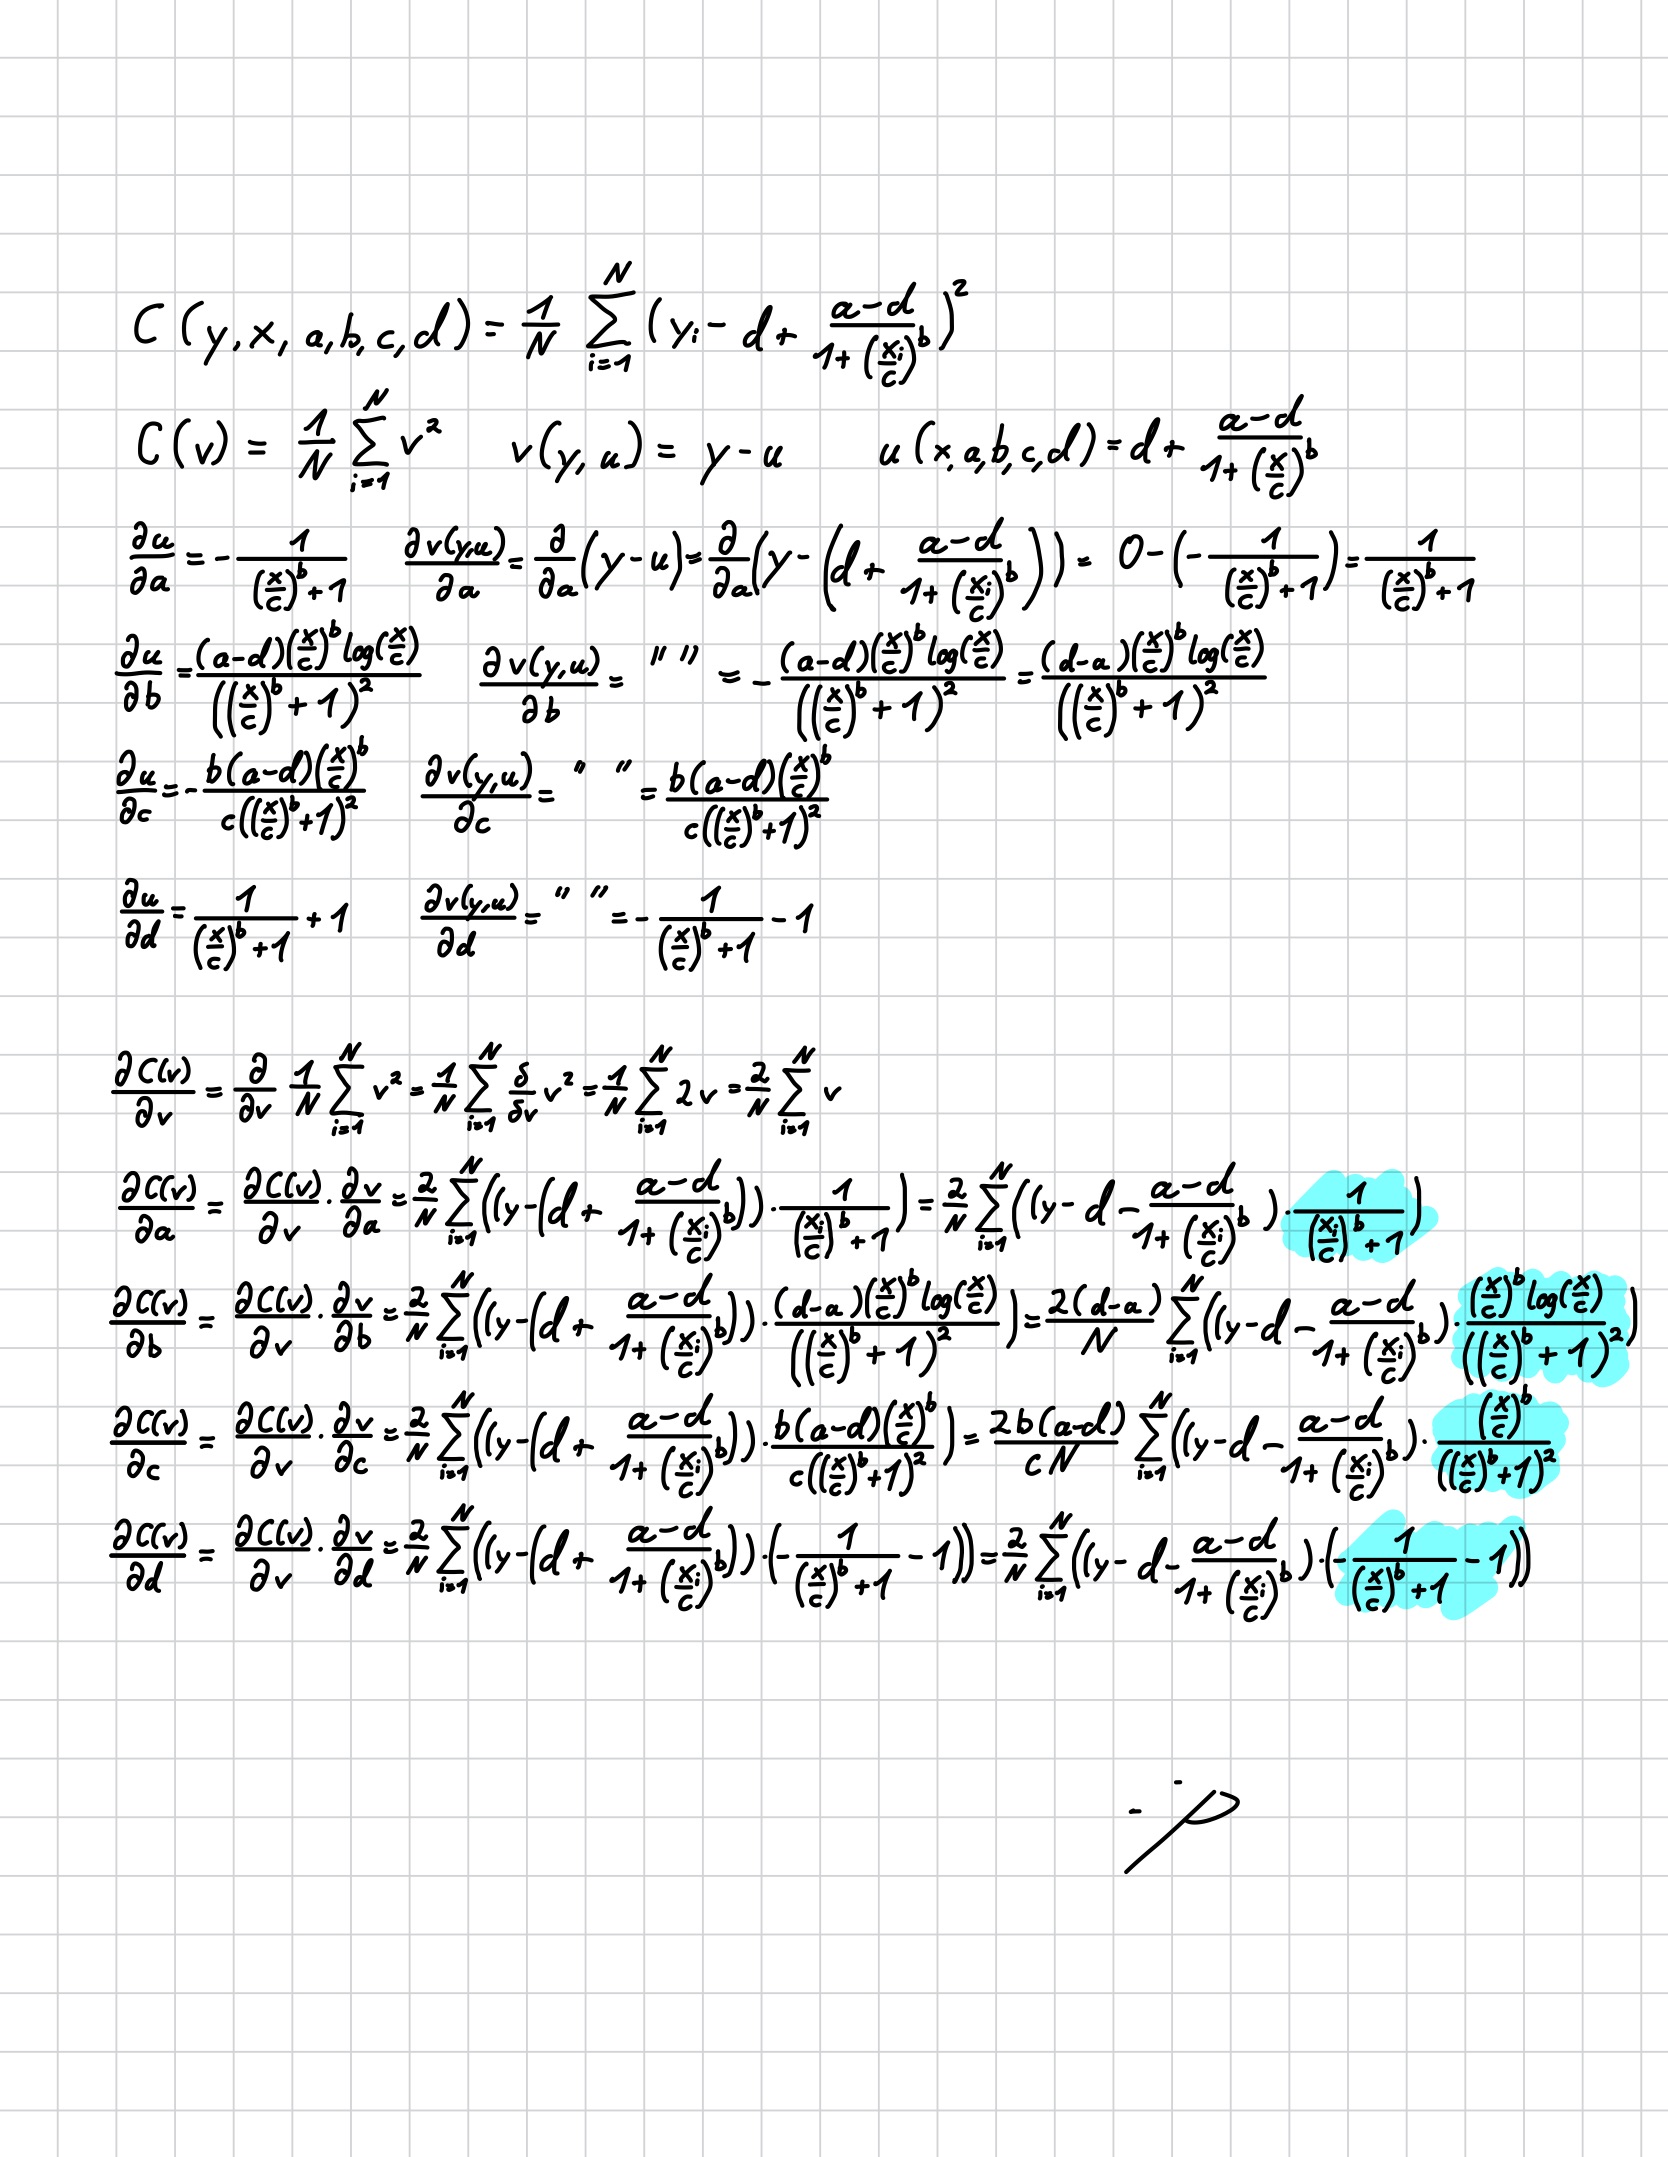 C(y, x, a, b, c, d) = \frac{1}{N} \sum_{i=1}^{N} (y_i - d + \frac{a-d}{1+(\frac{x_i}{c})^b})^2
C(v) = \frac{1}{N} \sum_{i=1}^{N} v^2   v(y, u) = y - u   u(x, a, b, c, d) = d + \frac{a-d}{1+(\frac{x}{c})^b}
\frac{∂u}{∂a} = -\frac{1}{(\frac{x}{c})^b+1}   \frac{∂v(y,u)}{∂a} = \frac{∂}{∂a}(y-u) = \frac{∂}{∂a}(y-(d+\frac{a-d}{1+(\frac{x_i}{c})^b})) = 0-(-\frac{1}{(\frac{x}{c})^b+1}) = \frac{1}{(\frac{x}{c})^b+1}
\frac{∂u}{∂b} = \frac{(a-d)(\frac{x}{c})^b log(\frac{x}{c})}{((\frac{x}{c})^b+1)^2}   \frac{∂v(y,u)}{∂b} = " " = -\frac{(a-d)(\frac{x}{c})^b log(\frac{x}{c})}{((\frac{x}{c})^b+1)^2} = \frac{(d-a)(\frac{x}{c})^b log(\frac{x}{c})}{((\frac{x}{c})^b+1)^2}
\frac{∂u}{∂c} = -\frac{b(a-d)(\frac{x}{c})^b}{c((\frac{x}{c})^b+1)^2}   \frac{∂v(y,u)}{∂c} = " " = \frac{b(a-d)(\frac{x}{c})^b}{c((\frac{x}{c})^b+1)^2}
\frac{∂u}{∂d} = \frac{1}{(\frac{x}{c})^b+1} + 1   \frac{∂v(y,u)}{∂d} = " " = -\frac{1}{(\frac{x}{c})^b+1} - 1
\frac{∂C(v)}{∂v} = \frac{∂}{∂v} \frac{1}{N} \sum_{i=1}^{N} v^2 = \frac{1}{N} \sum_{i=1}^{N} \frac{δ}{δv} v^2 = \frac{1}{N} \sum_{i=1}^{N} 2v = \frac{2}{N} \sum_{i=1}^{N} v
\frac{∂C(v)}{∂a} = \frac{∂C(v)}{∂v} · \frac{∂v}{∂a} = \frac{2}{N} \sum_{i=1}^{N} ((y-(d+\frac{a-d}{1+(\frac{x_i}{c})^b})) · \frac{1}{(\frac{x_i}{c})^b+1}) = \frac{2}{N} \sum_{i=1}^{N} ((y-d-\frac{a-d}{1+(\frac{x_i}{c})^b}) · \frac{1}{(\frac{x_i}{c})^b+1})
\frac{∂C(v)}{∂b} = \frac{∂C(v)}{∂v} · \frac{∂v}{∂b} = \frac{2}{N} \sum_{i=1}^{N} ((y-(d+\frac{a-d}{1+(\frac{x_i}{c})^b})) · \frac{(d-a)(\frac{x}{c})^b log(\frac{x}{c})}{((\frac{x}{c})^b+1)^2}) = \frac{2(d-a)}{N} \sum_{i=1}^{N} ((y-d-\frac{a-d}{1+(\frac{x_i}{c})^b}) · \frac{(\frac{x}{c})^b log(\frac{x}{c})}{((\frac{x}{c})^b+1)^2})
\frac{∂C(v)}{∂c} = \frac{∂C(v)}{∂v} · \frac{∂v}{∂c} = \frac{2}{N} \sum_{i=1}^{N} ((y-(d+\frac{a-d}{1+(\frac{x_i}{c})^b})) · \frac{b(a-d)(\frac{x}{c})^b}{c((\frac{x}{c})^b+1)^2}) = \frac{2b(a-d)}{cN} \sum_{i=1}^{N} ((y-d-\frac{a-d}{1+(\frac{x_i}{c})^b}) · \frac{(\frac{x}{c})^b}{((\frac{x}{c})^b+1)^2}
\frac{∂C(v)}{∂d} = \frac{∂C(v)}{∂v} · \frac{∂v}{∂d} = \frac{2}{N} \sum_{i=1}^{N} ((y-(d+\frac{a-d}{1+(\frac{x_i}{c})^b})) · (-\frac{1}{(\frac{x}{c})^b+1} - 1)) = \frac{2}{N} \sum_{i=1}^{N} ((y-d-\frac{a-d}{1+(\frac{x_i}{c})^b}) · (-\frac{1}{(\frac{x}{c})^b+1} - 1))